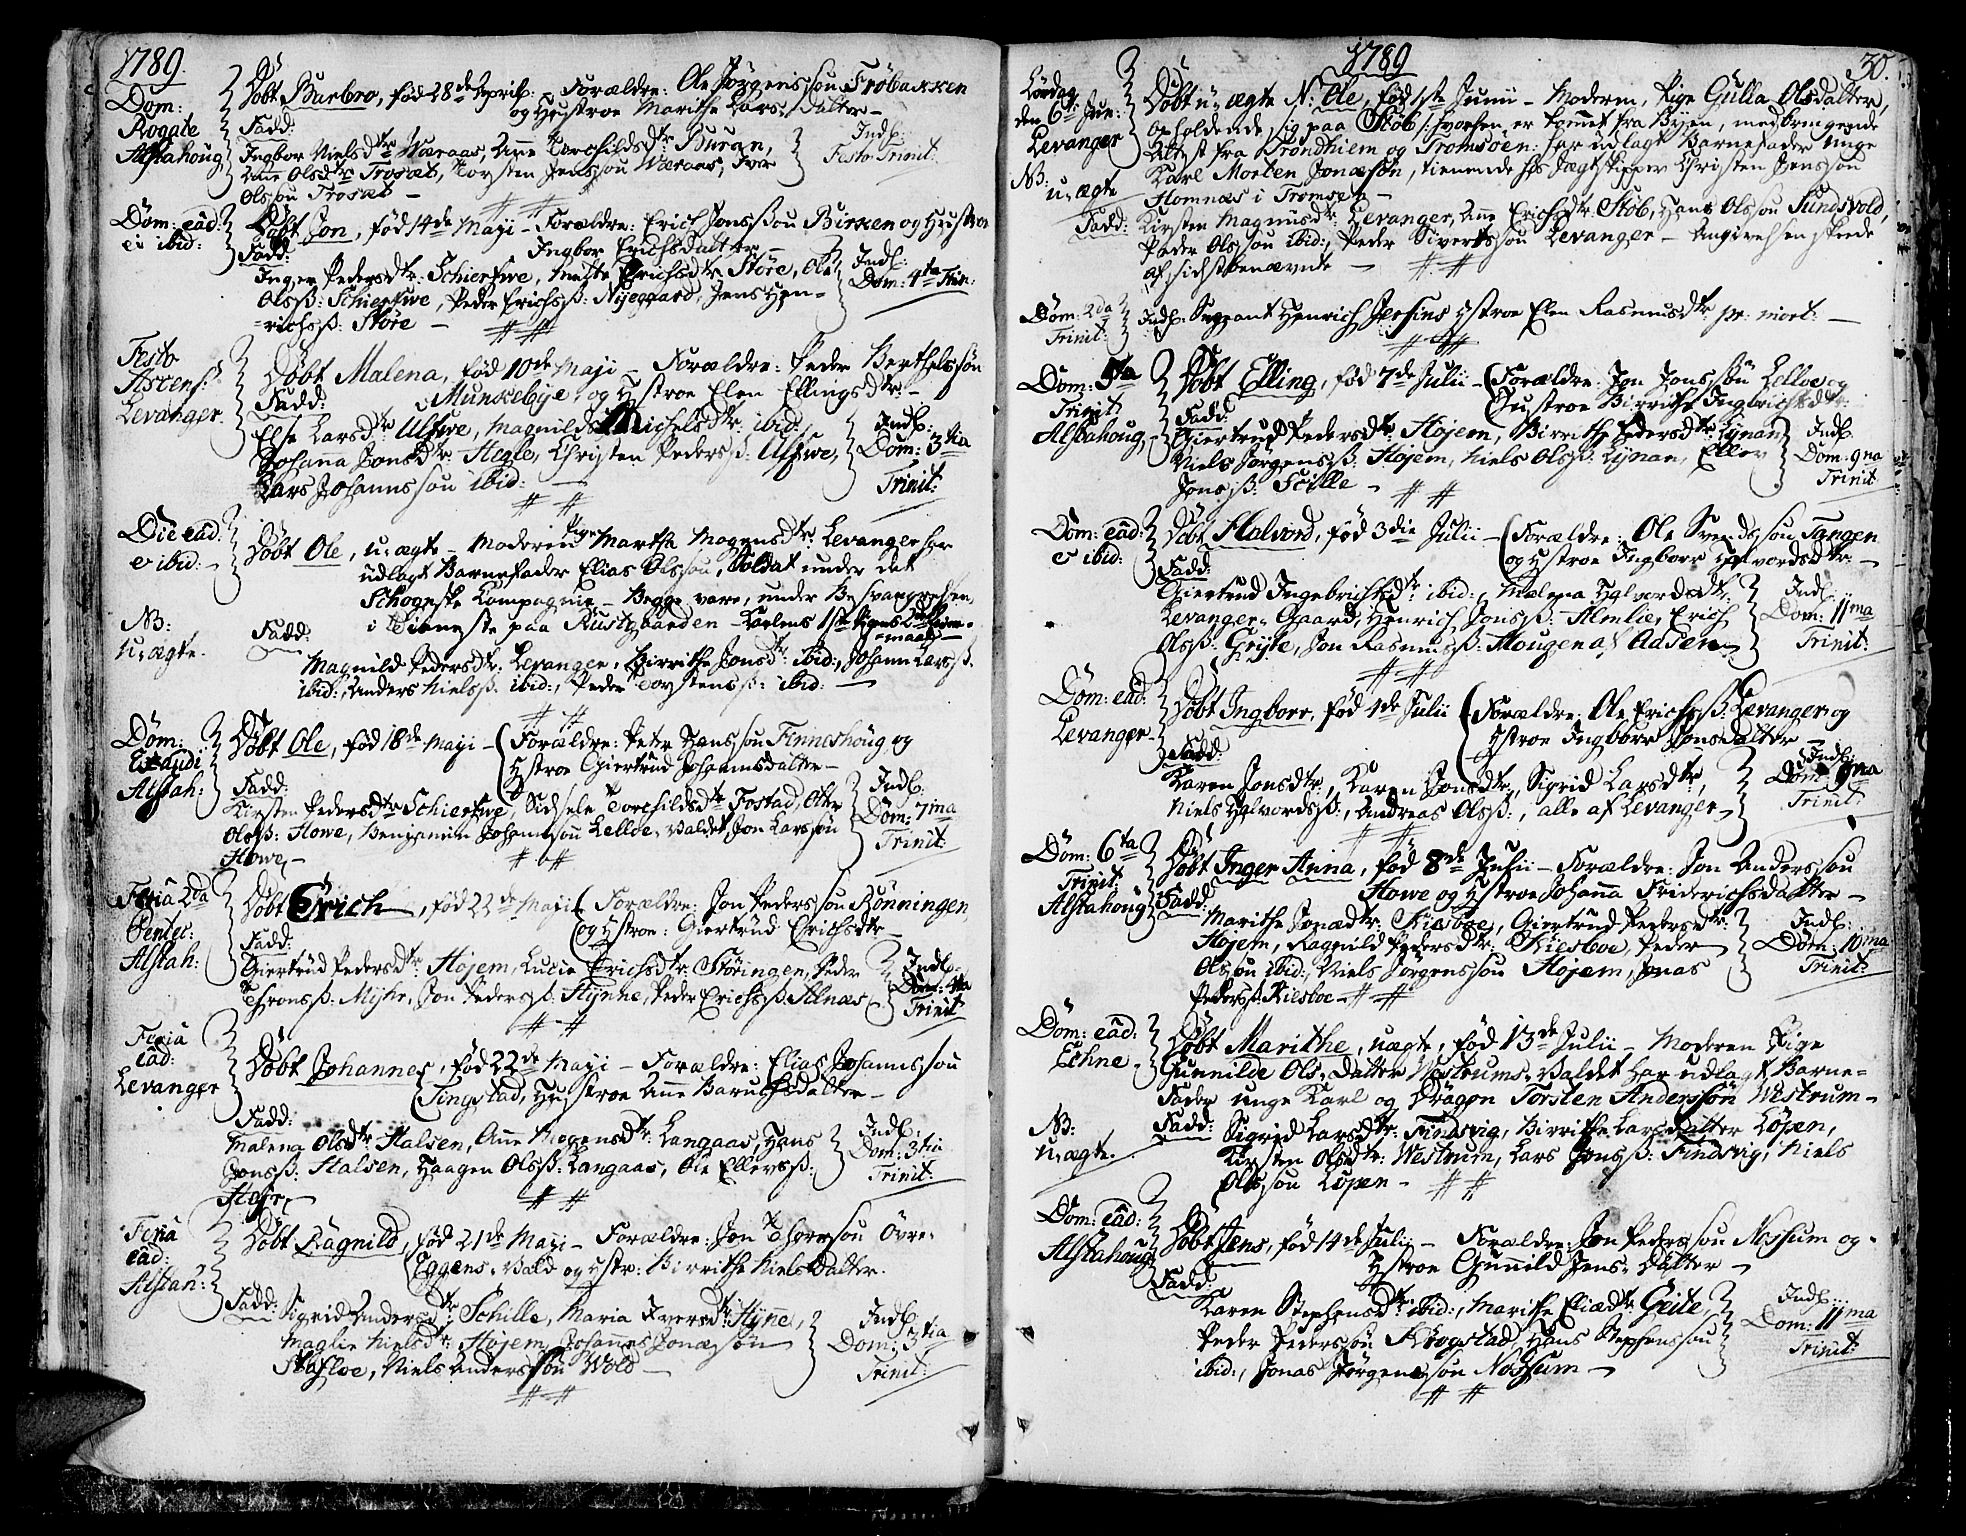 1789.
Dom: Rogate Alstahoug
Døbt Barbro, fød 28de April: – Forældre: Ole Jørgenssøn Frøbakken
og Hustroe Marithe Lars Datter –
Fadd:
Ingbor Nielsdtr Wæraas, Ane Torchildsdtr Buran,
Ane Olsdtr Trosæt, Torsten Jenssøn Wæraas, Iver
Olssøn Trosæt –
Indl: Festo Trinit:
Dom: eâd: e ibid:
Døbt Jon, fød 14de Maji – Forældre: Erich Jonssøn Birken og Hustroe
Ingbor Erichsdatter –
Fadd:
Inger Pedersdtr: Schierfwe, Marte Erichsdtr Støre, Ole
Olsß: Schierfwe, Peder Erichsß: Nyegaard, Jens Hen-
richsß: Støre –
Indl: Dom: 4ta Trin:
Festo Ascens: Levanger
Døbt Malena, fød 10de Maji – Forældre: Peder Berthelssøn
Munkebye, og Hustroe Elen Ellingsdtr: –
Fadd:
Else Larsdtr Ulfwe, Magnild Michelsdtr: ibid:,
Johanna Jonsdtr Hegle, Christen Pedersß: Ulfwe,
Lars Johanssøn ibid: –
Indl: Dom: 3tia Trinit:
Die eâd: e ibid:
Døbt Ole, u-ægte – Moderen Pigen Marthe Mogensdtr: Levanger har
udlagt Barnefader Elias Olssøn, Soldat under det
Schognske Compagnie – Begge vare, under Besvangrelsen,
i Tieneste paa Rustgaarden – Karlens 1ste Pigens 2det Leier-
maal –
NB: U-ægte.
Fadd:
Magnild Pedersdtr: Levanger, Birrithe Jonsdtr ibid:, Johan Larsß:
ibid:, Anders Nielsß: ibid:, Peder Torstensß: ibid: –
Dom: Exaudi Alstah:
Døbt Ole, fød 18de Maji – Forældre: Peter Hanssøn Finneshoug og
Hstroe Giertrud Johannisdatter –
Fadd:
Kirsten Pedersdtr Schierfwe, Sidsele Torchildsdtr Tostad, Olle
Olsß: Howe, Benjamin Johanssøn Lelloe-Valdet, Jon Larssøn
Howe, –
Indl: Dom: 7ma Trinit:
Feria 2da Pentec: Alstah:
Døbt Erich, fød 22de Maji – Forældre: Jon Pederssøn Rønningen
og Hstroe: Giertrud Erichsdtr –
Fadd:
Giertrud Pedersdtr: Højem, Lucie Erichsdtr: Støringen, Peder
Thronsß: Myhr, Jon Pedersß: Hynne, Peder Erichsß: Alnæs
Indl: Dom: 4ta Trinit:
Feria eâd: Levanger
Døbt Johannes, fød 22de Maji – Forældre: Elias Johanssøn
Tingstad, Hustroe Ane Baruchsdatter –
Fadd:
Malena Olsdtr: Halsen, Ane Mogensdtr: Langaas, Hans
Jonsß: Halsen, Haagen Olsß: Langaas, Ole Ellevsß:
Indl: Dom: 3tia Trinit:
Feria eâd: Alstah:
Døbt Ragnild, fød 21de Maji – Forældre: Jon Thorssøn Øvre-
Eggens-Vald og Hstr: Birrithe Niels Datter.
Fadd: Sigrid Andersdtr: Schille, Maria Iversdtr: Hyne,
Maglie Nielsdtr: Højem, Johannes Jonæssøn
Stafloe, Niels Anderssøn Wold –
Indl: Dom: 3tia Trinit:
1789
30.
Løverdag den 6te Jun: Levanger
NB: u-ægte
Døbt u-ægte N: Ole, fød 1ste Junii – Moderen, Pige Gulla Olsdatter,
opholdende sig paa Støb /: hvorhen er kommet fra Byen, medbringende
Attest fra Trondhiem og Tromsøen: har udlagt Barnefader Unge
Karl Morten Jonæsøn, tienende hos Jægtskipper Christen Jenssøn
Hamnæs i Tromsøe.
Fadd: Kirsten Magnusdtr: Levanger, Ane Erichsdtr: Støb, Hans Olssøn Sundsvold,
Peder Olssøn ibid:, Peder Sivertssøn Levanger – Angivelsen skeede
af sidstbenævnte –
Dom: 2da Trinit:
Indl: Sergeant Henrich Jersins Hstroe Elen Rasmusdtr pr: mort: –
Dom: 5ta Trinit: Alstahoug –
Døbt Elling, fød 7de Julii – Forældre: Jon Jonssøn Lelloe og
Hustroe Birrithe Ingbrichtsdtr:
Fadd:
Giertrud Pedersdtr: Højem, Birrithe Pedersdtr: Lynan
Niels Jørgensß: Højem, Niels Olsß: Lynan, Ellev
Jonsß: Scille –
Indl: Dom: 9na Trinit:
Dom: eâd: e ibid:
Døbt Halvord, fød 3die Julii – Forældre: Ole Svendssøn Tangen
og Hstroe Ingborr Halvordsdtr: –
Fadd:
Giertrud Ingebrichtsdtr: ibid:, Malena Halvordsdtr:
Levanger-Gaard, Henrich Jonsß: Almlie, Erich
Olsß: Gryte, Jon Rasmusß: Mougen af Aasen
Indl: Dom: 11ma Trinit:
Dom: eâd: Levanger –
Døbt Ingborr, fød 4de Julii – Forældre: Ole Erichsß: Levanger og
Hstroe Ingborr Jonsdatter –
Fadd:
Karen Jonsdtr:, Karen Jonsdtr:, Sigrid Larsdtr:,
Niels Halvordsß:, Andreas Olsß:, alle af Levanger –
Indl: Dom: 9na Trinit:
Dom: 6ta Trinit: Alstahoug
Døbt Inger Anna, fød 8de Julii – Forældre: Jon Anderssøn
Howe og Hstroe Johanna Friderichsdatter –
Fadd:
Marithe Jonædtr: Kiesboe, Giertrud Pedersdtr:
Højem, Ragnild Pedersdtr: Kiesboe, Peder
Olssøn ibid:, Niels Jørgenssøn Højem, Jonas
Pedersß: Kiesboe –
Indl: Dom: 10ma Trinit:
Dom: eâd: Echne –
Døbt Marithe, uægte, fød 13de Julii – Moderen Pige
Gunnilde Ols-Datter Westrums-Valdet har udlagt Barne-
Fader unge Karl og Dragon Torsten Anderssøn Westrum –
NB: U-ægte.
Fadd: Sigrid Larsdtr: Findsvig, Birrithe Larsdatter Løpen,
Kirsten Olsdtr: Westrum, Lars Jonsß: Findsvig, Niels
Olssøn Løpen –
Dom: eâd: Alstahoug
Døbt Jens, fød 14de Julii – Forældre: Jon Pederssøn Nossum og
Hstroe Gunnild Jens-Datter –
Fadd:
Karen Stephensdtr: ibid:, Marithe Eliædtr: Geite,
Peder Pederssøn Krogstad, Hans Stephenssøn
ibid:, Jonas Jørgenssøn Nossum –
Indl: Dom: 11ma Trinit: